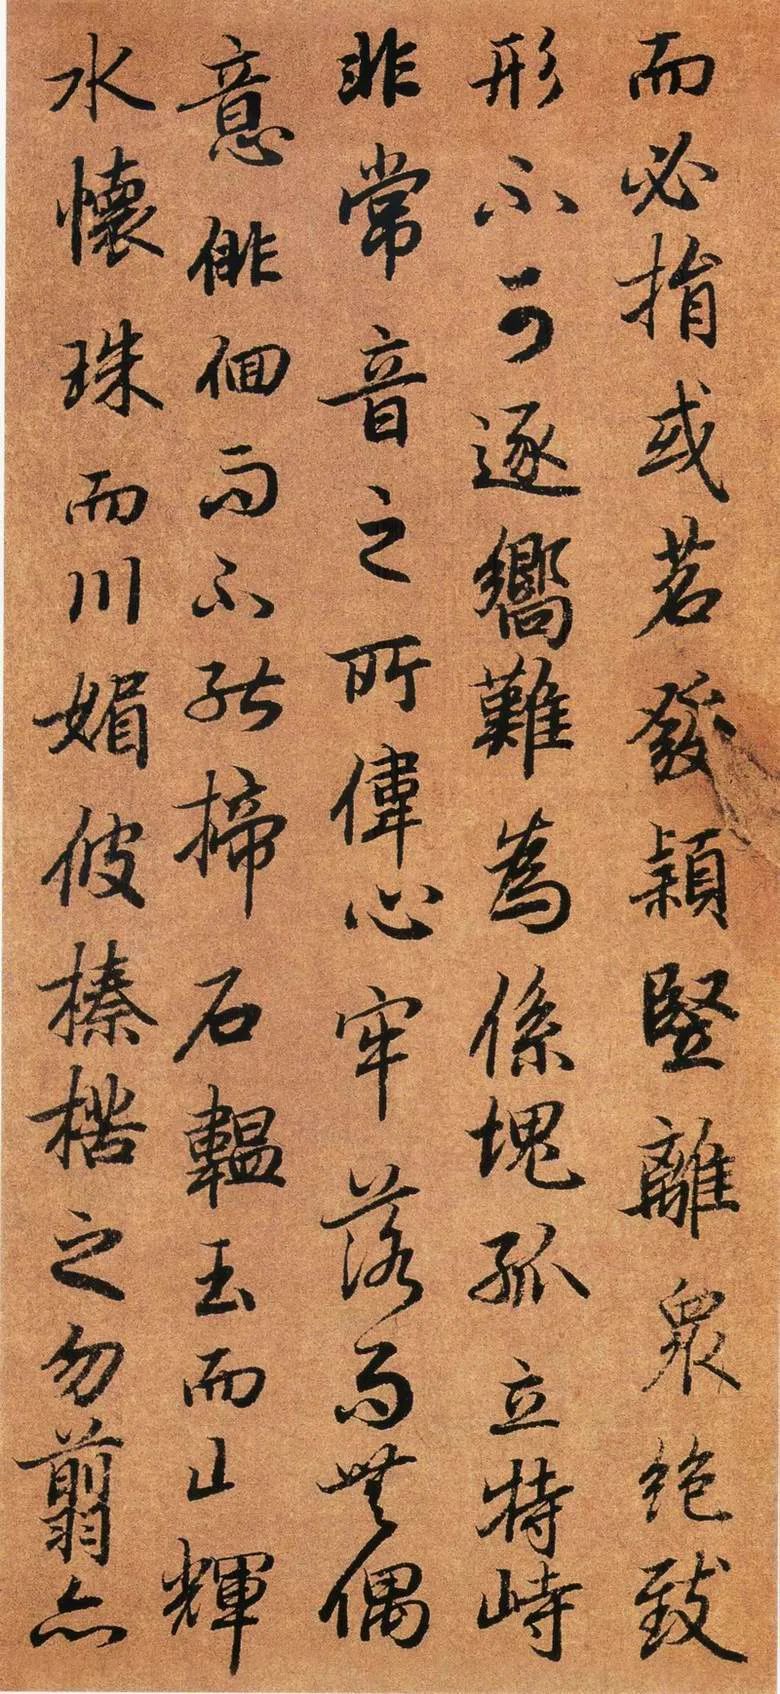 而必揩或苕發穎竪離衆絶致
形不可逐嚮難為係塊孤立特峙
非常音之所偉心牢落而無偶
意俳佪而不能揥石韞玉而山輝
水懷珠而川媚彼榛楛之勿翦亦